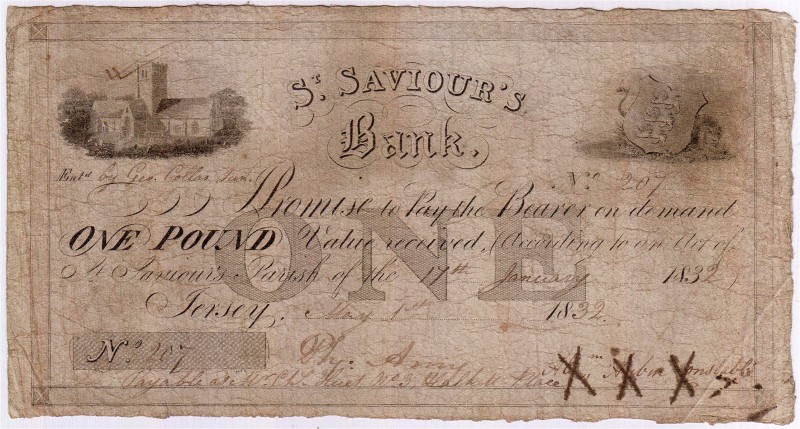 St. SAVIOUR'S
Bank.
Entd. by Geo. Collas Junr.
No. 207
I Promise to Pay the Bearer on demand
ONE POUND Value received, (According to an Act of
St. Saviour's Parish of the 17th January 1832)
ONE
Jersey, May 1st 1832.
No. 207
Ph.
Payable at Mr. Chs. No. 3, Place
Aubin Constable
X X X